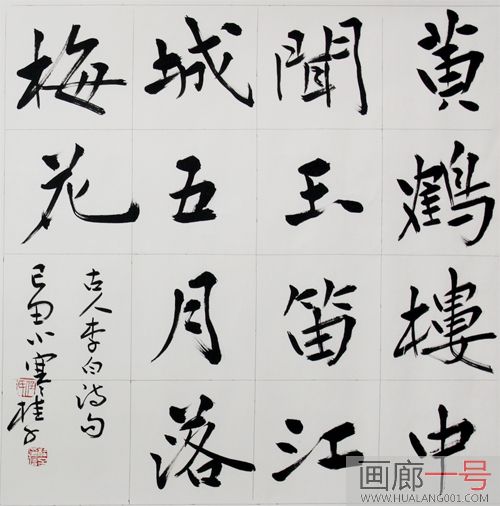 黄鶴樓中
聞玉笛江
城五月落
梅花
古人李白诗句
己丑小寒桂
画廊一号
WWW.HUALANG001.COM